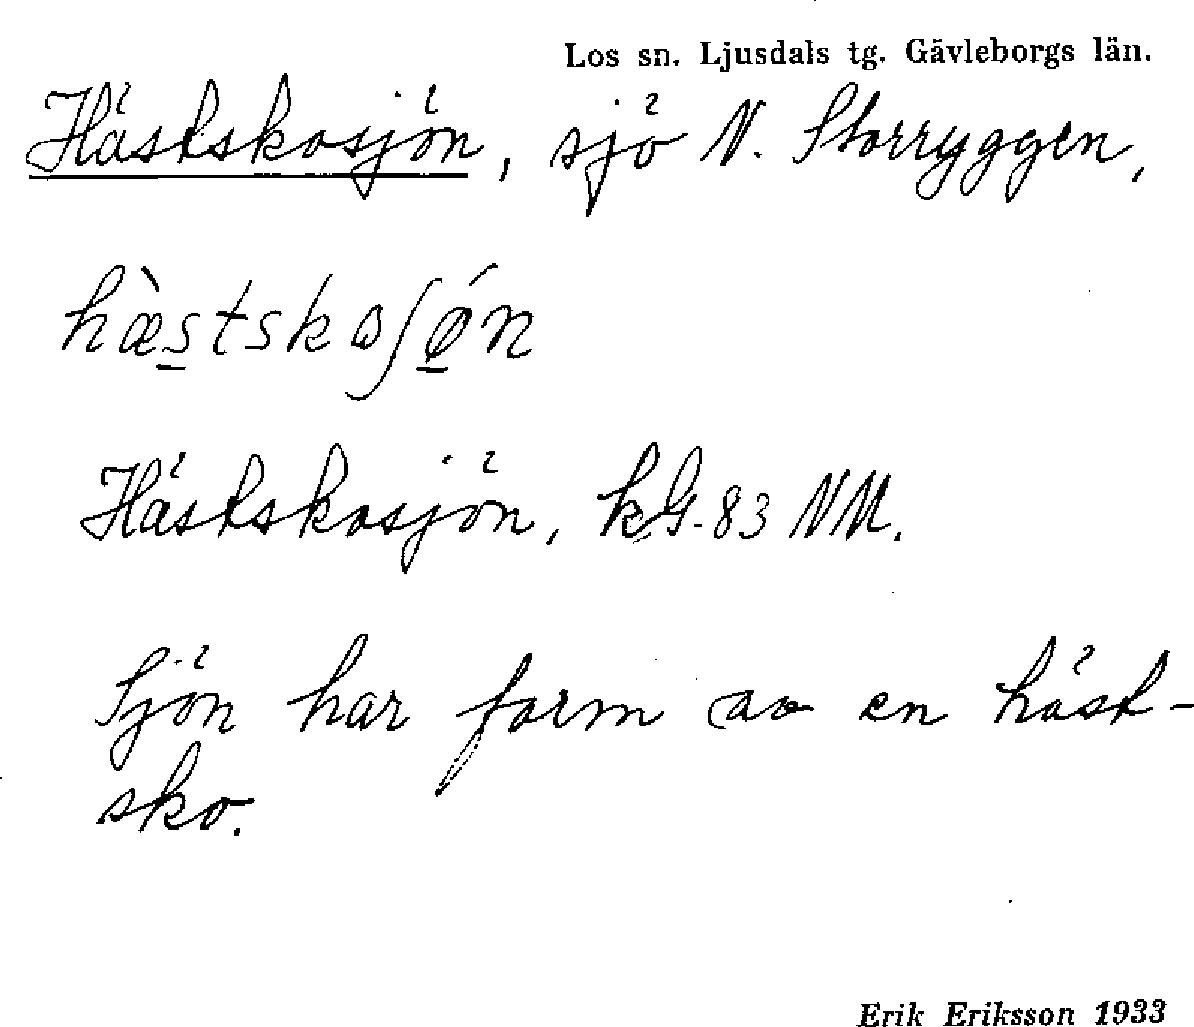 Los sn. Ljusdals tg. Gävleborgs län.
Hästskosjön, sjö N. Storryggen,
hæ̀stskoʃǿn
Hästskosjön, kG-83 NM.
Sjön har form av en häst-
sko.
Erik Eriksson 1933